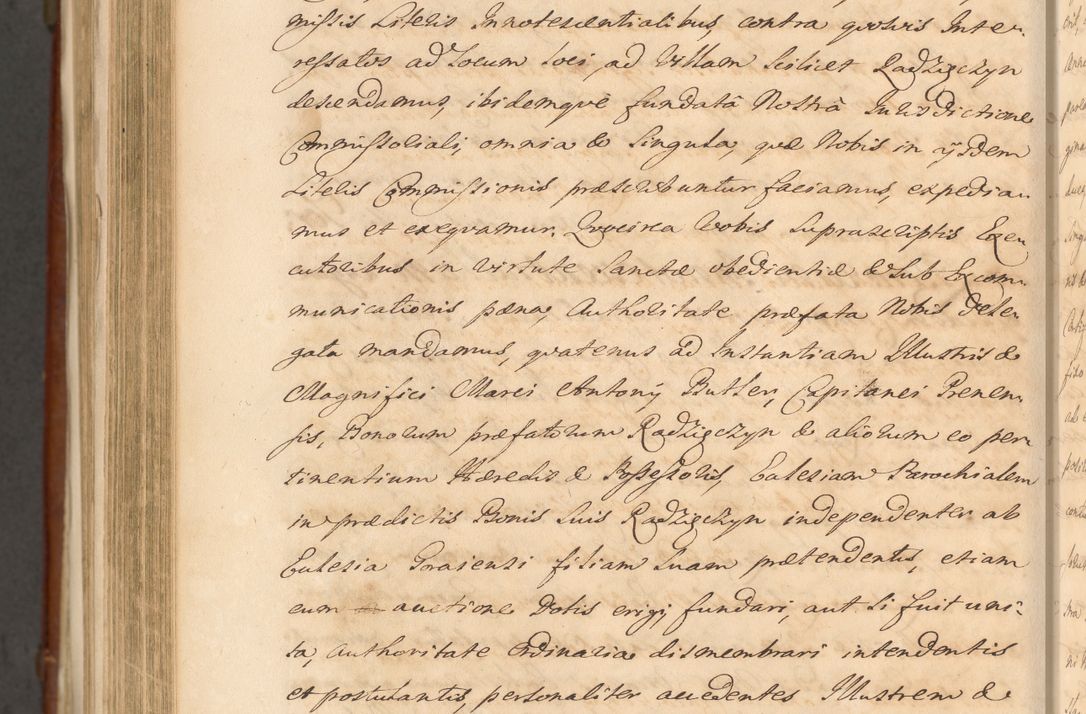 missis Literis Innotescentialibus, contra quosvis Inte-
ressatos ad Locum loci, ad Villam scilicet Radzięczyn
descendamus, ibidemque fundatâ Nostrâ Iurisdictione
Commissoriali, omnia & singula, quæ Nobis in ijsdem
Literis Commissionis præscribuntur faciamus, expedia-
mus et exequamur. Quocirca Vobis suprascriptis Exe-
cutoribus in virtute Sanctæ obedientiæ & sub Excom-
municationis pæna, Authoritate præfata Nobis dele-
gata mandamus, quatenus ad Instantiam Illustris &
Magnifici Marci Antonij Butler, Capitanei Prenen-
sis, Bonorum præfatorum Radzięczyn & aliorum eo per
tinentium Hæredis & Possessoris, Ecclesiam Parochialem
in prædictis Bonis suis Radzięczyn independenter ab
Ecclesia Goraiensi filiam suam prætendentis, etiam
cum auctione Dotis erigi, fundari, aut si fuit uni-
ta, Authoritate Ordinaria dismembrari intendentis
et postulantis, personaliter accedentes Illustrem &